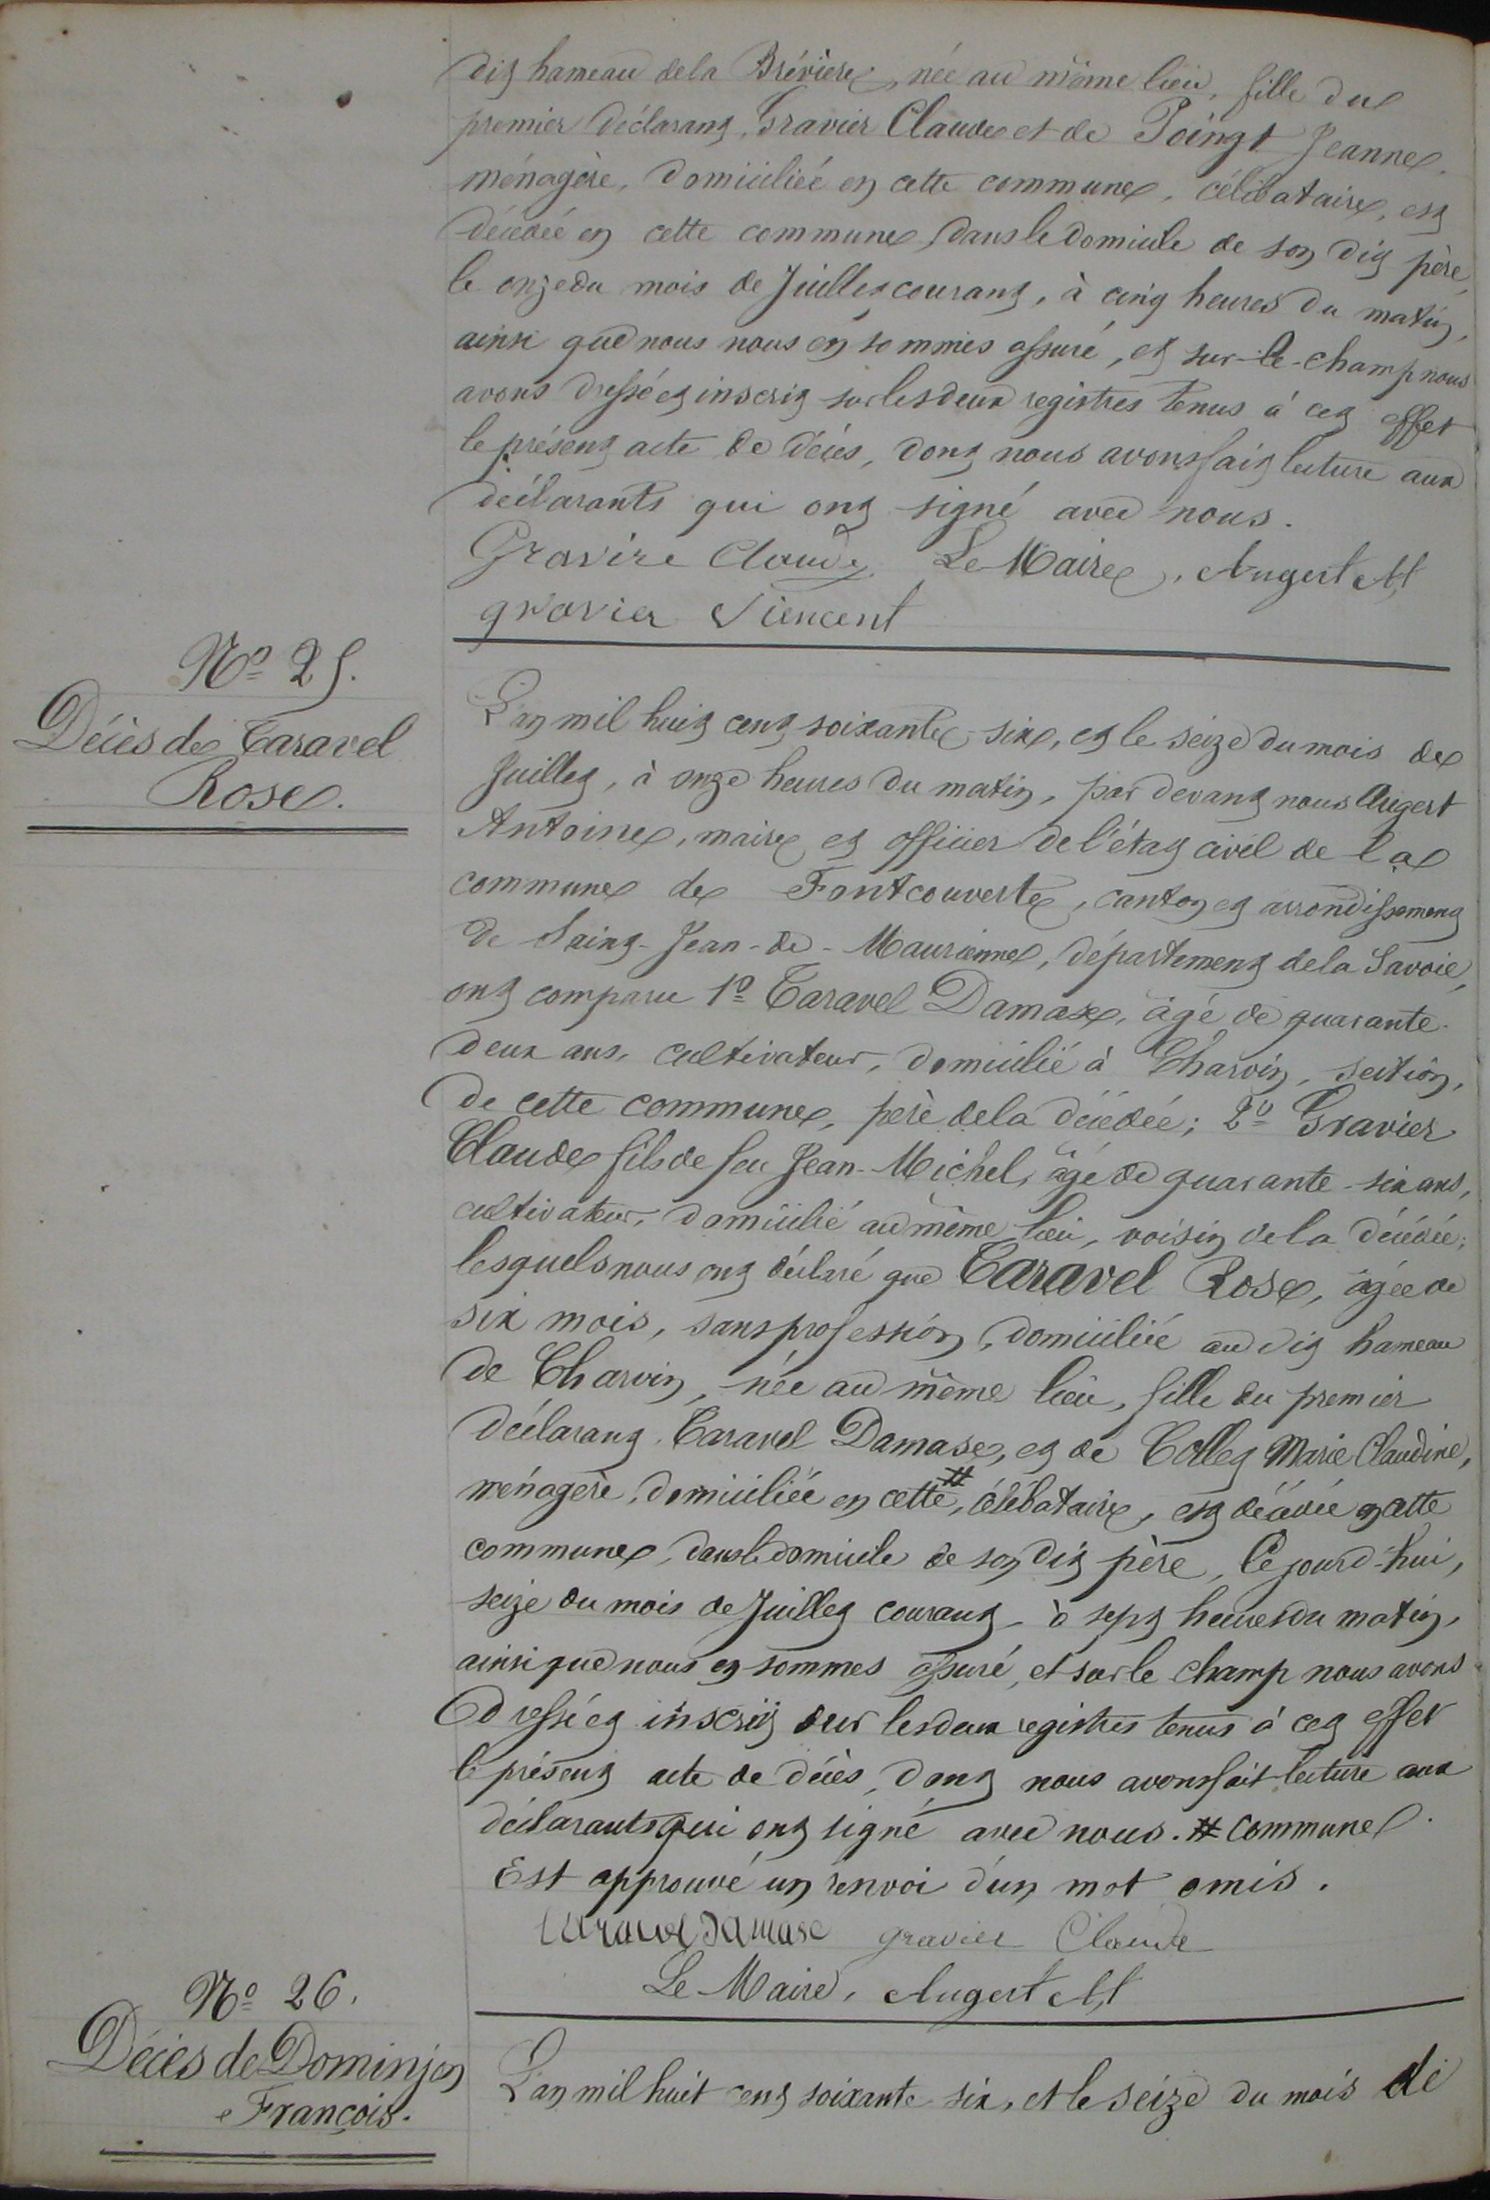 dit hameau de la Brévière, née au même lieu, fille du
premier déclarant, Gravier Claude et de Poingt Jeanne,
ménagère, domiciliée en cette commune, célibataire, est
décédée en cette commune, dans le domicile de son dit père,
le onze du mois de Juillet courant, à cinq heures du matin,
ainsi que nous nous en sommes assuré, et sur-le-champ nous
avons dressé et inscrit sur les deux registres tenus à cet effet
le présent acte de décès, dont nous avons fait lecture aux
déclarants qui ont signé avec nous.
Gravire Claude Le Maire, Augert At
gravier Viencent
No 25.
Décès de Taravel
Rose.
L'an mil huit cent soixante-six, et le seize du mois de
Juillet, à onze heures du matin, par devant nous Augert
Antoine, maire et officier de l'état civil de la
commune de Fontcouverte, canton et arrondissement
de Saint-Jean-de-Maurienne, département de la Savoie,
ont comparu 1o Taravel Damase, âgé de quarante-
deux ans, cultivateur, domicilié à Charvin, section,
de cette commune, père de la décédée; 2o Gravier
Claude fils de feu Jean-Michel, âgé de quarante-six ans,
cultivateur, domicilié au même lieu, voisin de la décédée;
lesquels nous ont déclaré que Taravel Rose, âgée de
six mois, sans profession, domiciliée au dit hameau
de Charvin, née au même lieu, fille du premier
déclarant, Taravel Damase, et de Collet Marie Claudine,
ménagère, domiciliée en cette #, célibataire, est décédée en cette
commune, dans le domicile de son dit père, ce jourd'hui,
seize du mois de Juillet courant, à sept heures du matin,
ainsi que nous en sommes assuré, et sur le champ nous avons
dressé et inscrit sur les deux registres tenus à cet effet
le présent acte de décès, dont nous avons fait lecture aux
déclarants qui ont signé avec nous. # commune.
Est approuvé un renvoi d'un mot omis.
taravel Damase gravier Claude
Le Maire, Augert At
No 26.
Décès de Dominjon
François.
L'an mil huit cent soixante six, et le seize du mois de